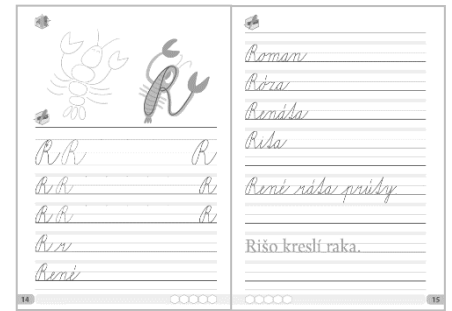 R
R R R
R R R
R R R
R r
René
14
Roman
Róza
Renáta
Rita
René ráta prúty.
Rišo kreslí raka.
15